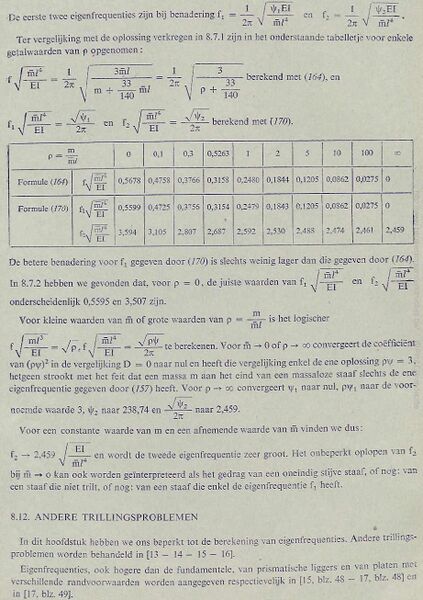 De eerste twee eigenfrequenties zijn bij benadering f₁ = 1/2π √(ψ₁EI/m̄l⁴) en f₂ = 1/2π √(ψ₂EI/m̄l⁴).
Ter vergelijking met de oplossing verkregen in 8.7.1 zijn in het onderstaande tabelletje voor enkele
getalwaarden van ρ opgenomen :
f √(m̄l⁴/EI) = 1/2π √(3m̄l/(m + 33/140 m̄l)) = 1/2π √(3/(ρ + 33/140)) berekend met (164), en
f₁ √(m̄l⁴/EI) = √ψ₁/2π en f₂ √(m̄l⁴/EI) = √ψ₂/2π berekend met (170).
ρ = m/m̄l 0 0,1 0,3 0,5263 1 2 5 10 100 ∞
Formule (164) f√(m̄l⁴/EI) 0,5678 0,4758 0,3766 0,3158 0,2480 0,1844 0,1205 0,0862 0,0275 0
Formule (170) f₁√(m̄l⁴/EI) 0,5599 0,4725 0,3756 0,3154 0,2479 0,1843 0,1205 0,0862 0,0275 0
f₂√(m̄l⁴/EI) 3,594 3,105 2,807 2,687 2,592 2,530 2,488 2,474 2,461 2,459
De betere benadering voor f₁ gegeven door (170) is slechts weinig lager dan die gegeven door (164).
In 8.7.2 hebben we gevonden dat, voor ρ = 0, de juiste waarden van f₁ √(m̄l⁴/EI) en f₂ √(m̄l⁴/EI)
onderscheidenlijk 0,5595 en 3,507 zijn.
Voor kleine waarden van m̄ of grote waarden van ρ = m/m̄l is het logischer
f √(ml³/EI) = √ρ . f √(m̄l⁴/EI) = √ρψ/2π te berekenen. Voor m̄ → 0 of ρ → ∞ convergeert de coëfficiënt
van (ρψ)² in de vergelijking D = 0 naar nul en heeft die vergelijking enkel de ene oplossing ρψ = 3,
hetgeen strookt met het feit dat een massa m aan het eind van een massaloze staaf slechts de ene
eigenfrequentie gegeven door (157) heeft. Voor ρ → ∞ convergeert ψ₁ naar nul, ρψ₁ naar de voor-
noemde waarde 3, ψ₂ naar 238,74 en √ψ₂/2π naar 2,459.
Voor een constante waarde van m en een afnemende waarde van m̄ vinden we dus:
f₂ → 2,459 √(EI/m̄l⁴) en wordt de tweede eigenfrequentie zeer groot. Het onbeperkt oplopen van f₂
bij m̄ → o kan ook worden geïnterpreteerd als het gedrag van een oneindig stijve staaf, of nog: van
een staaf die niet trilt, of nog: van een staaf die enkel de eigenfrequentie f₁ heeft.
8.12. ANDERE TRILLINGSPROBLEMEN
In dit hoofdstuk hebben we ons beperkt tot de berekening van eigenfrequenties. Andere trillings-
problemen worden behandeld in [13 – 14 – 15 – 16].
Eigenfrequenties, ook hogere dan de fundamentele, van prismatische liggers en van platen met
verschillende randvoorwaarden worden aangegeven respectievelijk in [15, blz. 48 – 17, blz. 48] en
in [17, blz. 49].